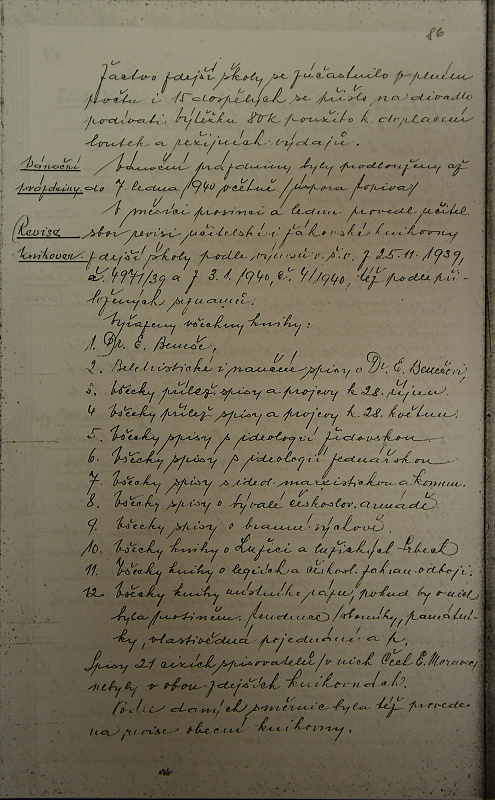 86
Žactvo zdejší školy se zúčastnilo v plném
počtu i 15 dospělých se přišlo na divadlo
podívati. Výtěžku 80 K použito k doplacení
loutek a režijních výdajů.
Vánoční Vánoční prázdniny byly prodlouženy až
prázdniny. do 7. ledna 1940 včetně /úspora topiva/
V měsíci prosinci a lednu provedl učitel.
Revise sbor revisi učitelské i žákovské knihovny
knihoven. zdejší školy podle výnosů o. š. v. z 25. 11. 1939,
č. 4971/39 a z 3. 1. /1940, č. 4/1940, též podle při-
ložených seznamů.
Vyřazeny všechny knihy:
1. Dr. E. Beneše,
2. Beletristické i naučné spisy o Dr. E. Benešovi,
3. Všecky přílež. spisy a projevy k 28. říjnu.
4. Všecky přílež. spisy a projevy k 28. květnu.
5. Všecky spisy s ideologií židovskou.
6. Všecky spisy s ideologií zednářskou
7. Všecky spisy s ideol. marxistickou a komun.
8. Všecky spisy o bývalé českoslov. armádě
9. Všecky spisy o branné výchově.
10. Všecky knihy o Lužici a lužických Srbech
11. Všecky knihy o legiích a českosl. zahran. odboji.
12. Všecky knihy místního rázu, pokud by v nich
byla protiněm. tendence /sborníky, památní-
ky, vlastivědná pojednání a p.
Spisy 21 cizích spisovatelů /z nich Čech E. Moravec/
nebyly v obou zdejších knihovnách.
Podle daných směrnic byla též provede-
na revise obecní knihovny.